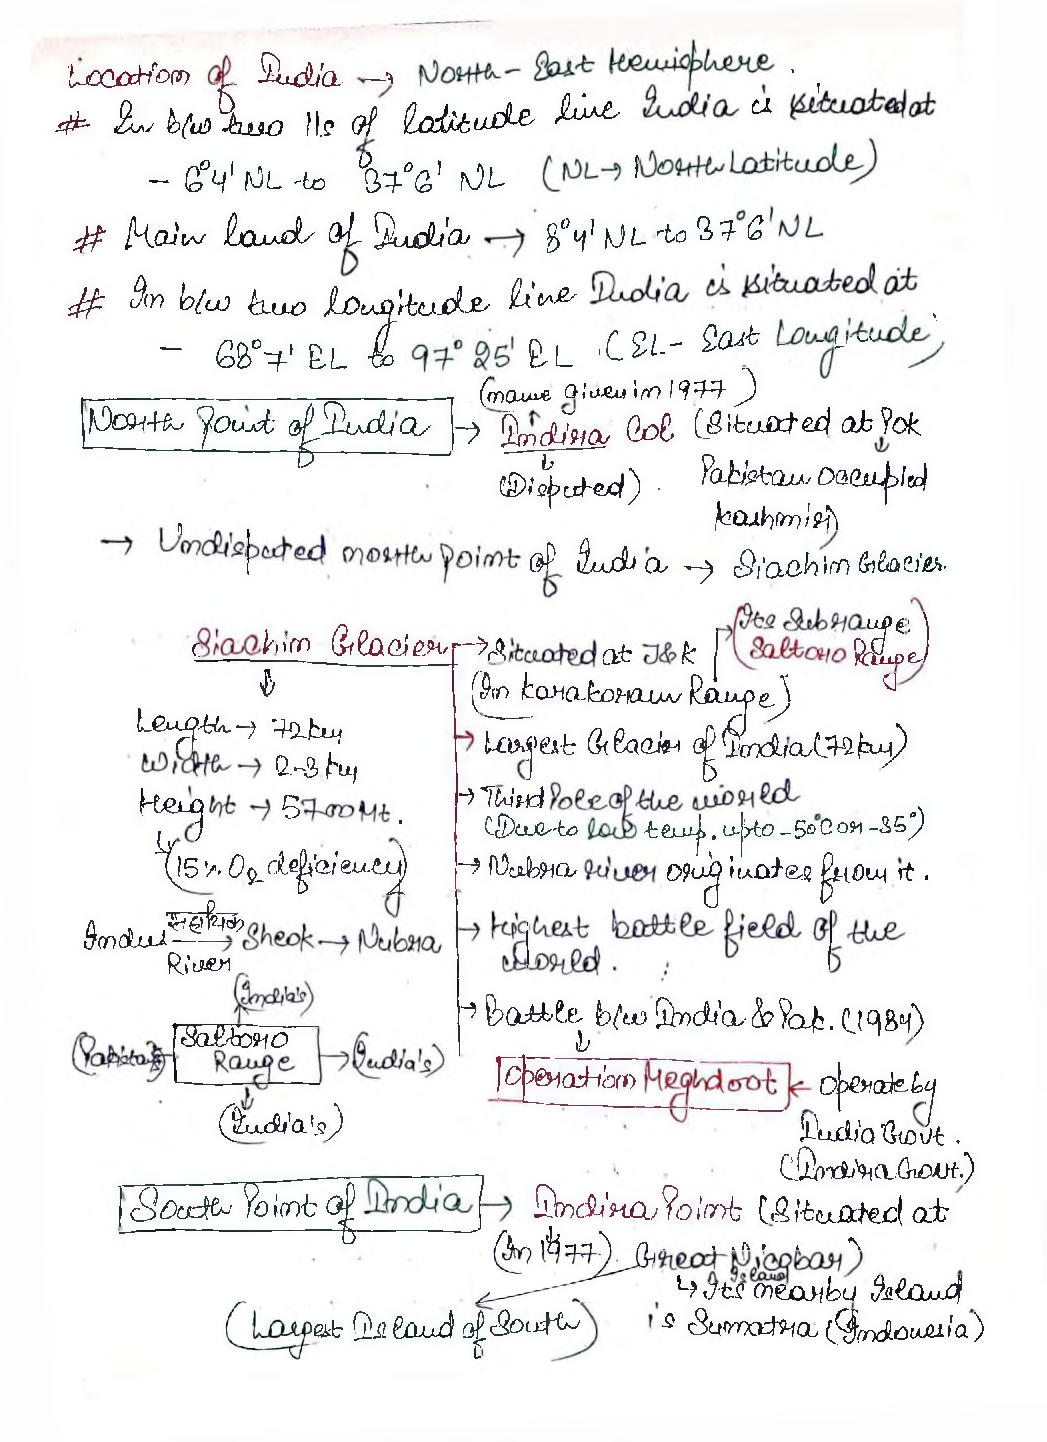 Location of India → North-East Hemisphere.
# In b/w two 11s of latitude line India is situated at
- 6°4' NL to 37°6' NL (NL → North Latitude)
# Main land of India → 8°4' NL to 37°6' NL
# In b/w two longitude line India is situated at
- 68°7' EL to 97°25' EL. (EL - East Longitude)
(name given in 1977)
North Point of India → Indira Col (Situated at Pok
(Disputed). Pakistan Occupied
Kashmir)
→ Undisputed north point of India → Siachin Glacier.
Siachin Glacier → Situated at J&K
(In karakoram Range)
(Its Subrange
Saltoro Range)
Length → 72 km
Width → 2-3 km
Height → 5700 Mt.
(15% O2 deficiency)
→ Largest Glacier of India (72 km)
→ Third Pole of the world
(Due to low temp. upto -50°C or -35°)
→ Nubra river originates from it.
Indus सहायक River → Sheok → Nubra
→ Highest battle field of the
world.
(India's)
(Pakistan's) Saltoro Range → (India's)
(India's)
→ Battle b/w India & Pak. (1984)
Operation Meghdoot ← Operate by
India Govt.
(Indira Govt.)
South Point of India → Indira Point (Situated at
(In 1977). Great Nicobar)
Island
↳ Its nearby Island
is Sumatra (Indonesia)
(Largest Island of South)